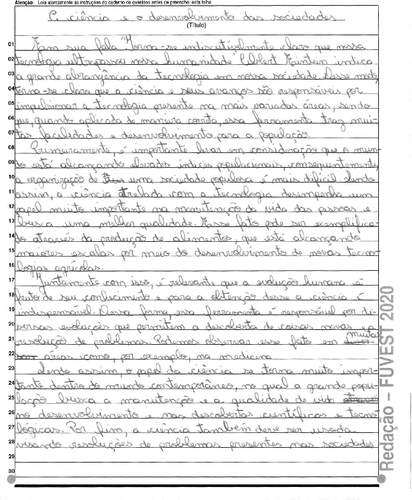 Atenção Leia atentamente as instruções do caderno de questões antes de preencher esta folha.
A ciência e o desenvolvimento das sociedades
(Título)
01 Em sua fala "Torna-se indiscutivelmente claro que nossa
02 tecnologia ultrapassou nossa humanidade" Albert Einstein indica
03 a grande abrangência da tecnologia em nossa sociedade. Desse modo,
04 torna-se claro que a ciência e seus avanços são responsáveis por
05 impulsionar a tecnologia presente na mais variadas áreas, sendo
06 que, quando aplicada de maneira correta, essa ferramenta traz mui-
07 tas facilidades e desenvolvimento para a população.
08 Primeiramente, é importante levar em consideração que o mun-
09 do está alcançando elevados índices populacionais, consequentemente,
10 a organização de uma sociedade populosa é mais difícil. Sendo
11 assim, a ciência atrelada com a tecnologia desempenha um
12 papel muito importante na manutenção da vida das pessoas e
13 busca uma melhor qualidade. Esse fato pode ser exemplifica-
14 do através da produção de alimentos, que está alcançando
15 maiores escalas por meio do desenvolvimento de novas tecno-
16 logias agrícolas.
17 Juntamente com isso, é relevante que a evolução humana é
18 fruto de seu conhecimento e para a obtenção desse a ciência é
19 indispensável. Dessa forma, essa ferramenta é responsável por di-
20 versas evoluções que permitem a descoberta de coisas novas e
21 resolução de problemas. Podemos observar esse fato em muitas
22 áreas como, por exemplo, na medicina.
23 Sendo assim, o papel da ciência se torna muito impor-
24 tante dentro do mundo contemporâneo, no qual a grande popu-
25 lação busca a manutenção e a qualidade de vida
26 no desenvolvimento e nas descobertas científicas e tecno-
27 lógicas. Por fim, a ciência também deve ser usada
28 visando resoluções de problemas presentes nas sociedades.
29
30
Redação – FUVEST 2020